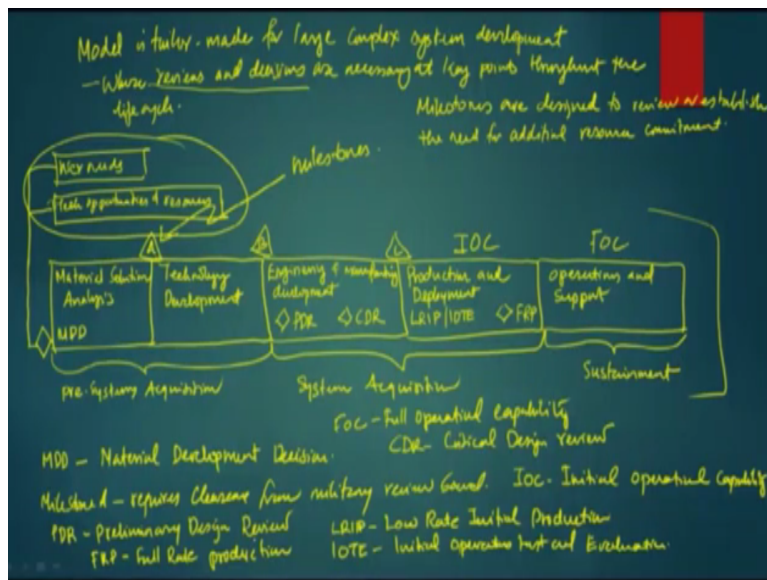 Model is tailor-made for large complex system development
- Whose reviews and decisions are necessary at key points throughout the
life cycle.
Milestones are designed to review or establish
the need for additional resource commitment.
milestones.
User needs
Tech opportunities & resources
A
B
C
IOC
FOC
Material Solution
Analysis
MDD
Technology
Development
Engineering & manufacturing
development
PDR
CDR
Production and
Deployment
LRIP/IOTE
FRP
Operations and
Support
Pre-Systems Acquisition
System Acquisition
Sustainment
FOC - Full operational capability
CDR - Critical Design review
MDD - Material Development Decision.
Milestone A - requires clearance from military review board.
IOC - Initial operational Capability
PDR - Preliminary Design Review
LRIP - Low Rate Initial Production
FRP - Full Rate production
IOTE - Initial operations test and Evaluation.